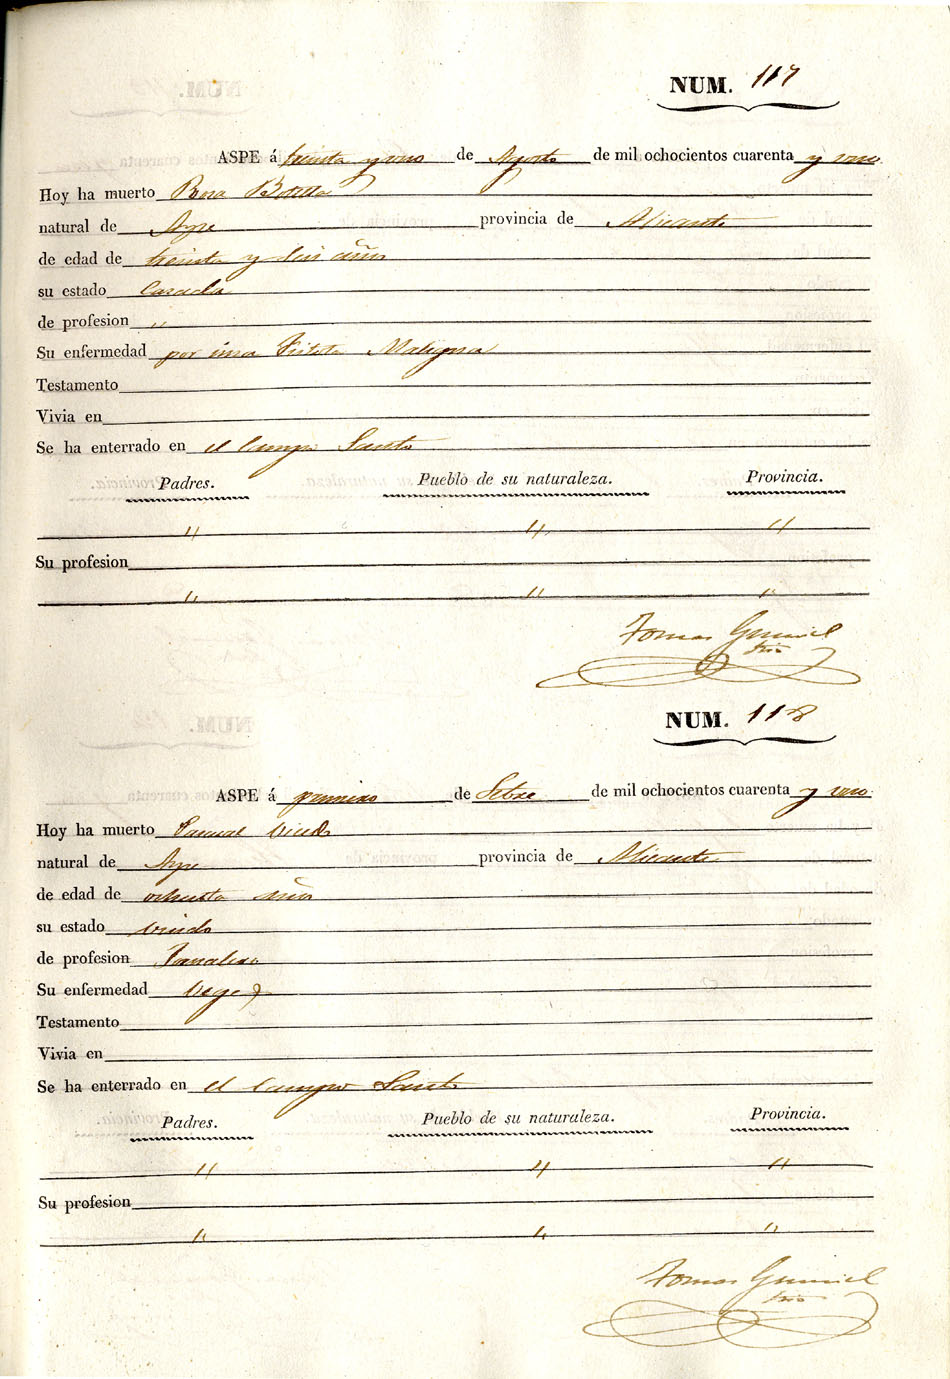 NUM. 117
ASPE á treinta y uno de Agosto de mil ochocientos cuarenta y uno
Hoy ha muerto Rosa Botella
natural de Aspe provincia de Alicante
de edad de treinta y seis años
su estado Casada
de profesion "
Su enfermedad por una Fistola Maligna
Testamento
Vivia en
Se ha enterrado en el Campo Santo
Padres. Pueblo de su naturaleza. Provincia.
" " "
Su profesion
" " "
Tomas Gumiel
NUM. 118
ASPE á primero de Setbre de mil ochocientos cuarenta y uno
Hoy ha muerto Pascual
natural de Aspe provincia de Alicante
de edad de ochenta años
su estado viudo
de profesion Jornalero
Su enfermedad vegez
Testamento
Vivia en
Se ha enterrado en el Campo Santo
Padres. Pueblo de su naturaleza. Provincia.
" " "
Su profesion
" " "
Tomas Gumiel